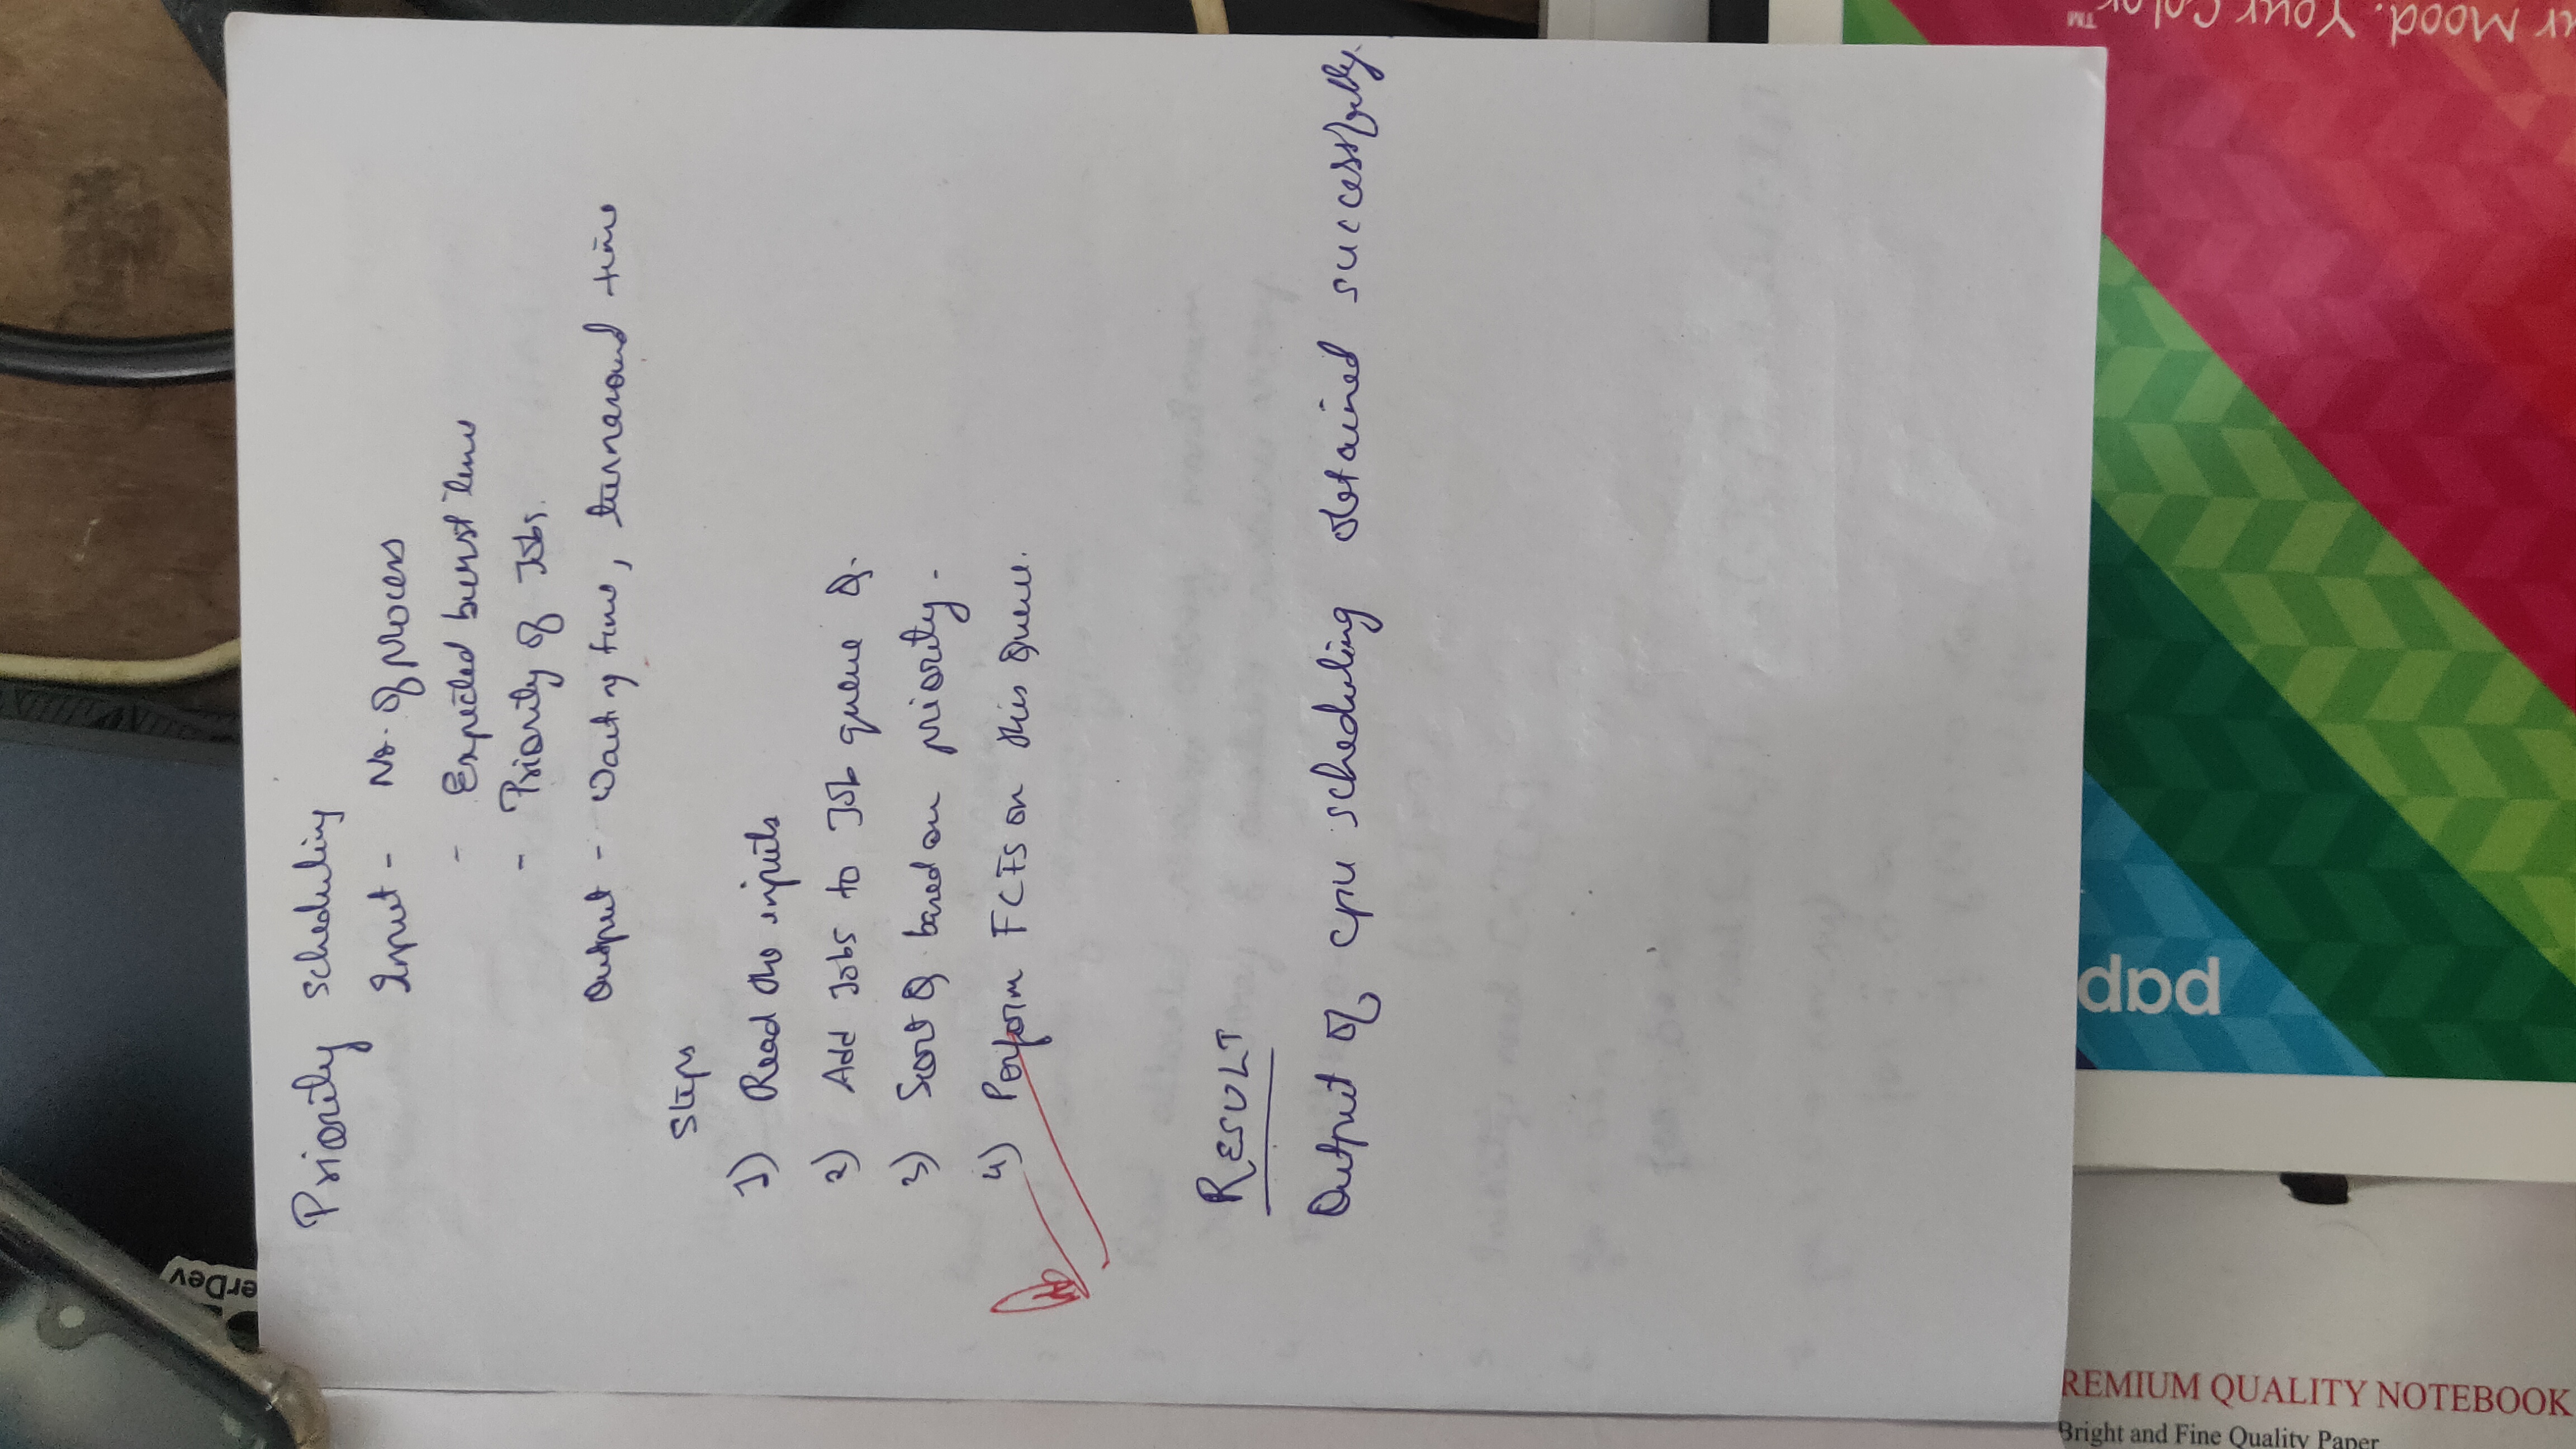 erDev
Priority scheduling
Input - No. of process
- Expected burst time
- Priority of Jobs.
Output - Waiting time, turnaround time
Steps
1) Read the inputs
2) Add Jobs to Job queue Q.
3) Sort Q based on priority.
4) Perform FCFS on this Queue.
RESULT
Output of cpu scheduling obtained successfully.
REMIUM QUALITY NOTEBOOK
Bright and Fine Quality Paper
r Mood. Your Color™